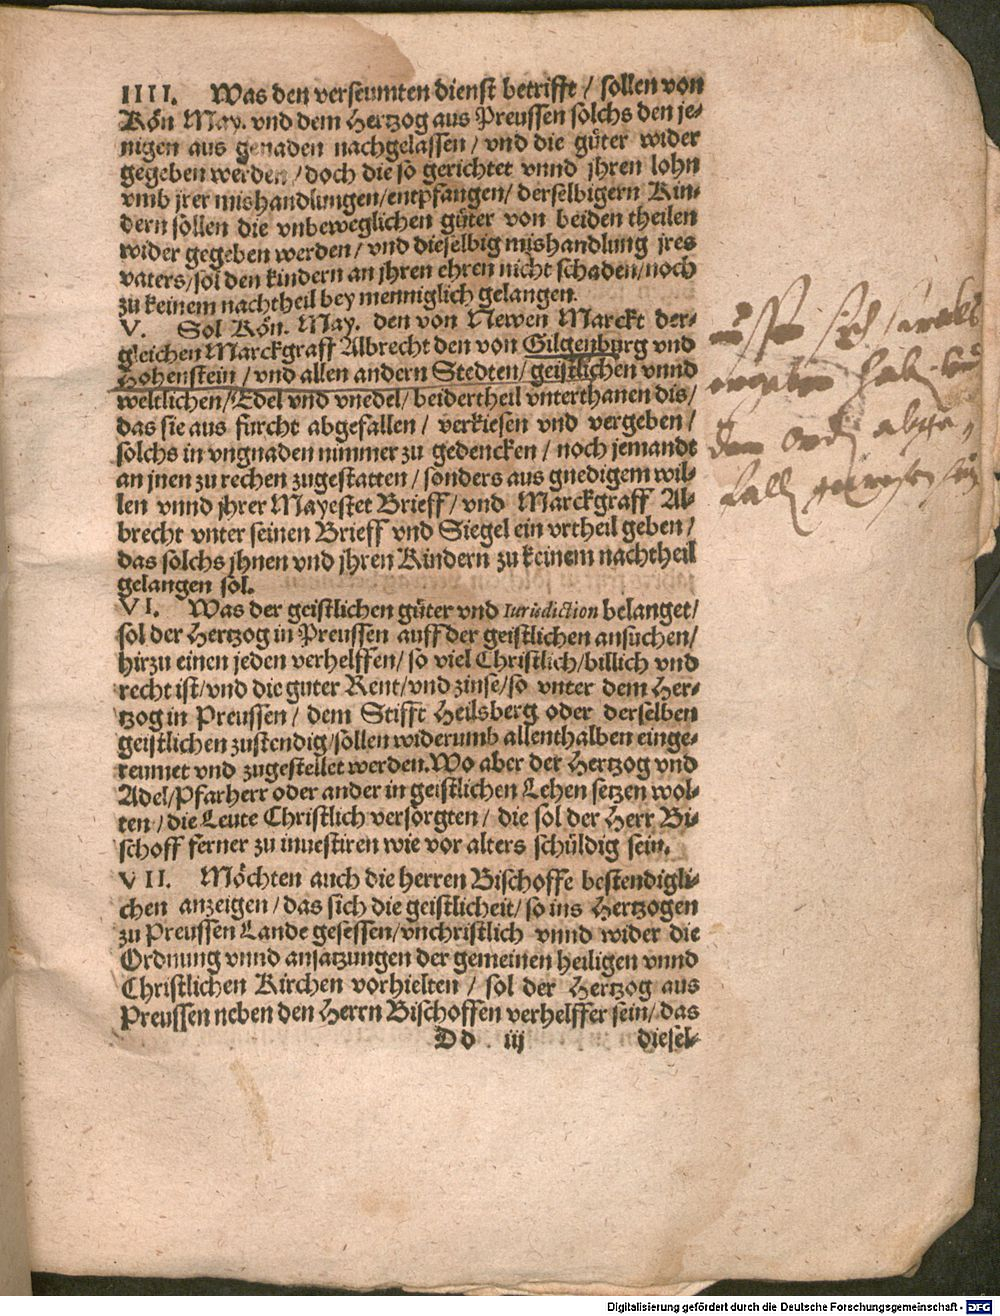 IIII. Was den verseumten dienst betrifft / sollen von
Kön May. vnd dem Hertzog aus Preussen solchs den je-
nigen aus genaden nachgelassen / vnd die güter wider
gegeben werden / doch die so gerichtet vnnd jhren lohn
vmb jrer mishandlungen / entpfangen / derselbigern Kin-
dern sollen die vnbeweglichen güter von beiden theilen
wider gegeben werden / vnd dieselbig mishandlung jres
vaters / sol den kindern an jhren ehren nicht schaden / noch
zu keinem nachtheil bey menniglich gelangen.
V. Sol Kön. May. den von Newen Marckt der-
gleichen Marckgraff Albrecht den von Gilgenburg vnd
Hohenstein / vnd allen andern Stedten / geistlichen vnnd
weltlichen / Edel vnd vnedel / beidertheil vnterthanen dis /
das sie aus furcht abgefallen / verkiesen vnd vergeben /
solchs in vngnaden nimmer zu gedencken / noch jemandt
an jnen zu rechen zugestatten / sonders aus gnedigem wil-
len vnnd jhrer Mayestet Brieff / vnd Marckgraff Al-
brecht vnter seinen Brieff vnd Siegel ein vrtheil geben /
das solchs jhnen vnd jhren Kindern zu keinem nachtheil
gelangen sol.
VI. Was der geistlichen güter vnd Iurisdiction belanget /
sol der Hertzog in Preussen auff der geistlichen ansuchen /
hirzu einen jeden verhelffen / so viel Christlich / billich vnd
recht ist / vnd die guter Rent / vnd zinse / so vnter dem Her-
tzog in Preussen / dem Stifft Heilsberg oder derselben
geistlichen zustendig / sollen widerumb allenthalben einge-
reumet vnd zugestellet werden. Wo aber der Hertzog vnd
Adel / Pfarherr oder ander in geistlichen Lehen setzen wol-
ten / die Leute Christlich versorgten / die sol der Herr Bi-
schoff ferner zu inuestiren wie vor alters schüldig sein.
VII. Möchten auch die herren Bischoffe bestendigli-
chen anzeigen / das sich die geistlicheit / so ins Hertzogen
zu Preussen Lande gesessen / vnchristlich vnnd wider die
Ordnung vnnd ansatzungen der gemeinen heiligen vnnd
Christlichen Kirchen vorhielten / sol der Hertzog aus
Preussen neben den Herrn Bischoffen verhelffer sein / das
Dd iij diesel-
Digitalisierung gefördert durch die Deutsche Forschungsgemeinschaft - DFG